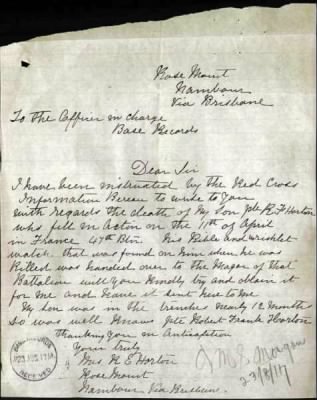 Rose Mount
Nambour
Via Brisbane
To the Officer in charge
Base Records
Dear Sir
I have been instructed by the Red Cross
Information Bereau to write to you
with regards the death of My Son Pte R F Horton
who fell in Action on the 11th of April
in France 47th Btn. His Bible and wristlet
watch that was found on him when he was
Killed was handed over to the Magor of that
Battalion will you Kindly try and obtain it
for me and have it sent here to me
My son was in the trenches nearly 12 months
so was well known Pte Robert Frank Horton
Thanking you in Anticipation
Yours truly
Mrs R E Horton
Rose Mount
Nambour Via Brisbane
Morgan
23/8/17
RECEIVED